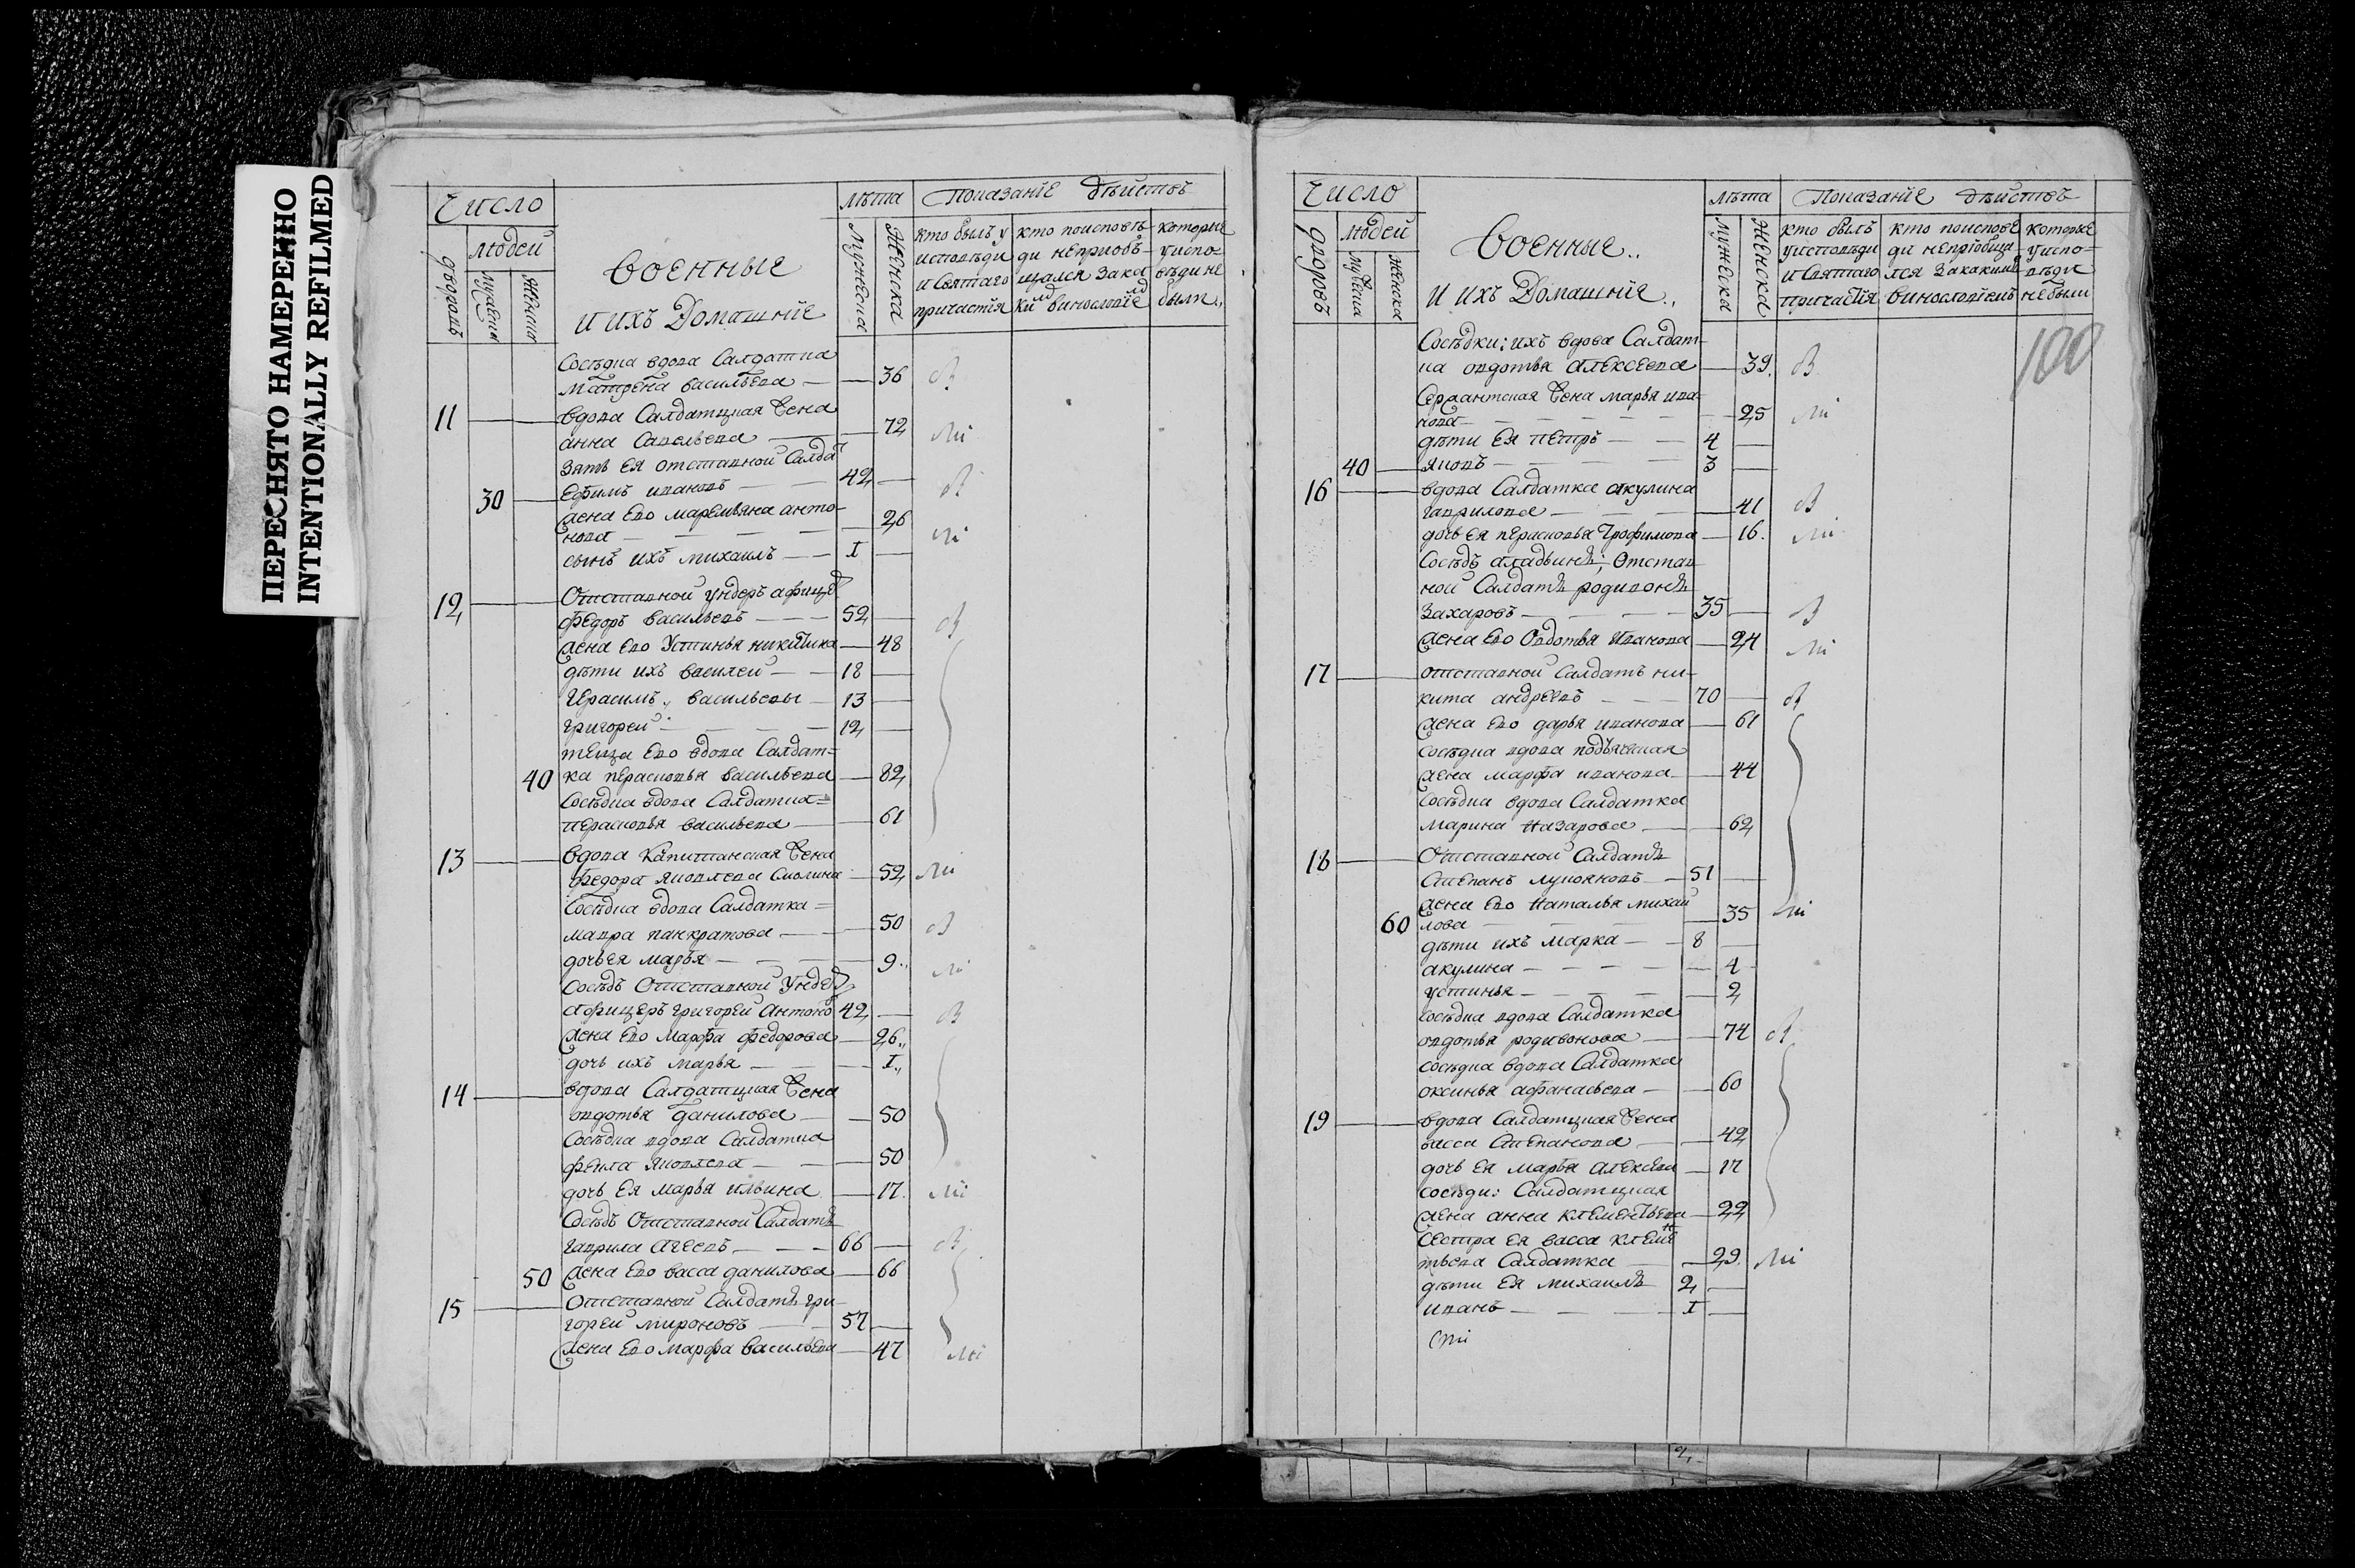 ПЕРЕСНЯТО НАМЕРЕННО
INTENTIONALLY REFILMED
Число
людей
дворовъ
мужеска
женска
Военныя
и ихъ Домашнїе
лѣта
Мужеска
Женска
Показанїе дѣйствъ
кто былъ у
исповѣди
и Святаго
причастїя
кто исповѣ
ди неприобѣ
щался зака
кимъ винословїемъ
которые
уиспо
вѣди не
были
Сосѣдка вдова Салдатка
матрена васильева — 36
11 вдова Салдатцкая жена
анна Савельева — 72
Зять ея отставной Салдатъ
30 Ефимъ ивановъ — 42
жена Ево маремьяна анто-
нова — 26
сынъ ихъ михаилъ — I
12 Отставной ундеръ афицеръ
федоръ васильевъ — 52
жена Ево Устинья никитина — 48
дѣти ихъ василей — 18
Герасимъ васильевы — 13
григорей — 12
теща Ево вдова Салдат=
40 ка парасковья васильева — 82
Сосѣдка вдова Салдатка=
парасковья васильева — 61
13 вдова Капитанская жена
федора яковлева Смолина — 52
Сосѣдка вдова Салдатка=
мавра панкратова — 50
дочь ея марья — 9
Сосѣдъ Отставной Ундеръ
афицеръ григорей Антоновъ 42
жена Ево Марфа федорова — 26
дочь ихъ марья — I
14 вдова Салдатцкая жена
овдотья данилова — 50
Сосѣдка вдова Салдатка
фекла яковлева — 50
дочь Ея марья ильина — 17
Сосѣдъ Отставной Салдатъ
гаврила Агеевъ — 66
50 жена Ево васса данилова — 66
15 Отставной Салдатъ гри-
горей мироновъ — 57
жена Ево марфа васильева — 47
Число
людей
дворовъ
мужеска
женска
Военные
и ихъ Домашнїе
лѣта
мужеска
женска
Показанїе дѣйствъ
кто былъ
уисповѣди
и Святаго
причастїя
кто исповѣ
ди непрїобща
лся за какимъ
винословїемъ
которые
уиспо=
вѣди
небыли
100
Сосѣдки: ихъ вдова Салдат-
ка овдотья алексеева — 39
Сержантская жена марья ива-
нова — 25
дѣти Ея петръ — 4
40 яковъ — 3
16 вдова Салдатка акулина
гаврилова — 41
дочь ея парасковья Трофимова — 16
Сосѣдъ Отстав
ной Салдатъ родивонъ
Захаровъ — 35
жена Ево Овдотья Иванова — 24
17 отставной Салдатъ ни-
кита андреевъ — 70
жена Ево дарья иванова — 61
Сосѣдка вдова подъяческая
жена марфа иванова — 44
Сосѣдка вдова Салдатка
марина Назарова — 62
18 Отставной Салдатъ
Степанъ лукояновъ — 51
жена Ево Наталья михай
60 лова — 35
дѣти ихъ марка — 8
акулина — 4
устинья — 2
Сосѣдка вдова Салдатка
овдотья родивонова — 74
Сосѣдка вдова Салдатка
оксинья афанасьева — 60
19 вдова Салдатцкая жена
васса Степанова — 42
дочь ея марья алексеева — 17
сосѣди: Салдатцкая
жена анна клементьева — 22
Сестра ея васса клемен
тьева Салдатка — 29
дѣти Ея михаилъ 2
иванъ — I